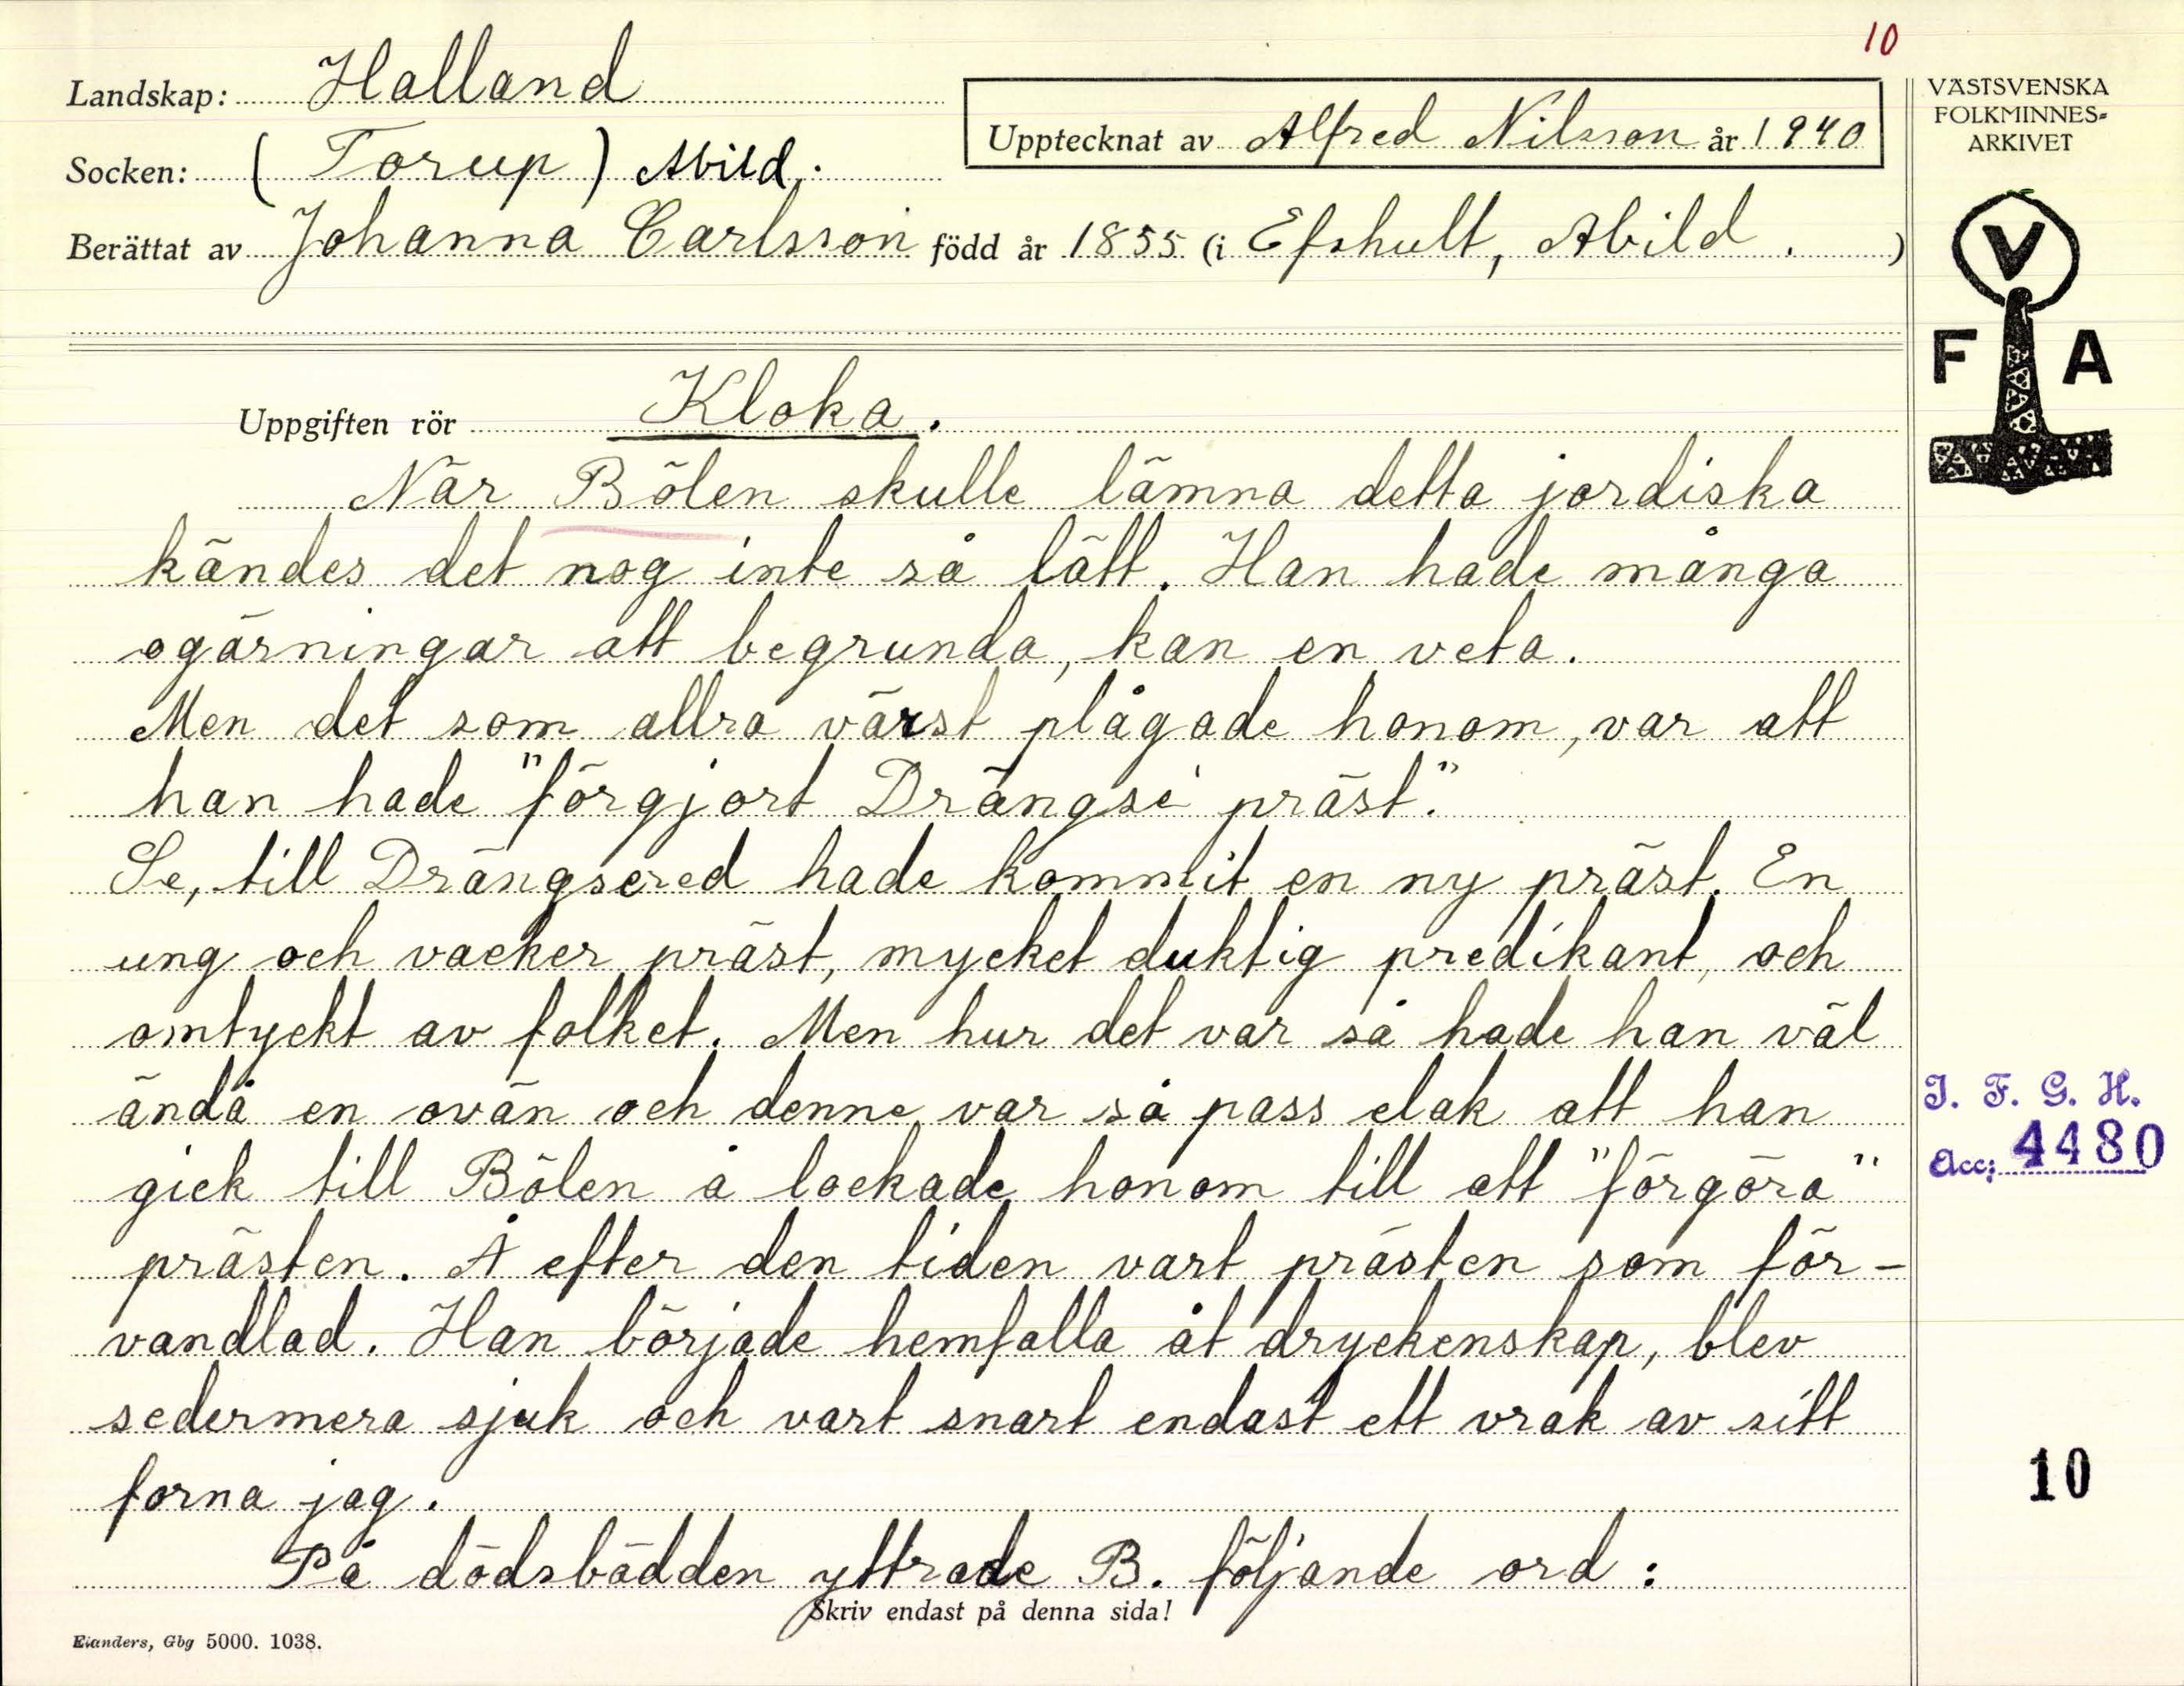 10
Landskap: Halland
Socken: (Torup) Abild.
Upptecknat av Alfred Nilsson år 1940
Berättat av Johanna Carlsson född år 1855 (i Efshult, Abild. )
VÄSTSVENSKA
FOLKMINNES-
ARKIVET
V
F A
Uppgiften rör Kloka.
När Bölen skulle lämna detta jordiska
kändes det nog inte så lätt. Han hade många
ogärningar att begrunda, kan en veta.
Men det som allra värst plågade honom, var att
han hade "förgjort Drängse präst."
Se, till Drängsered hade kommit en ny präst. En
ung och vacker präst, mycket duktig predikant, och
omtyckt av folket. Men hur det var så hade han väl
ändå en ovän och denne var så pass elak att han
gick till Bölen å lockade honom till att "förgöra"
prästen. Å efter den tiden vart prästen som för-
vandlad. Han började hemfalla åt dryckenskap, blev
sedermera sjuk och vart snart endast ett vrak av sitt
forna jag.
På dödsbädden yttrade B. följande ord:
I. F. G. H.
Acc: 4480
10
Skriv endast på denna sida!
Elanders, Gbg 5000. 1038.